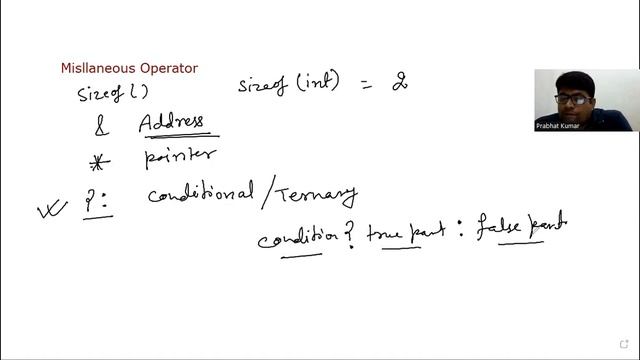 Misllaneous Operator
sizeof() sizeof(int) = 2
& Address
* pointer
?: conditional/Ternary
condition? true part : false part
Prabhat Kumar